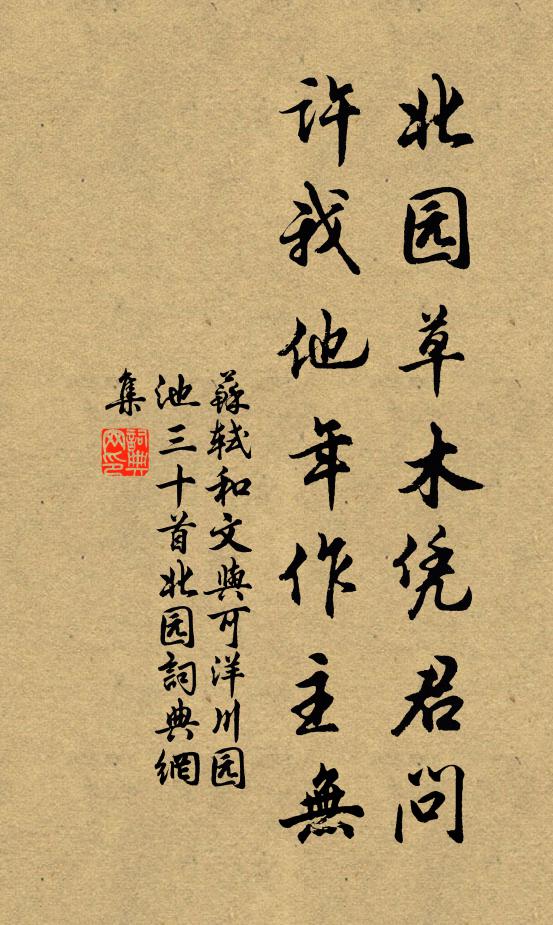 北园草木凭君问
许我他年作主無
蘇轼和文與可洋川园
池三十首北园詞典網
集
詞典网印